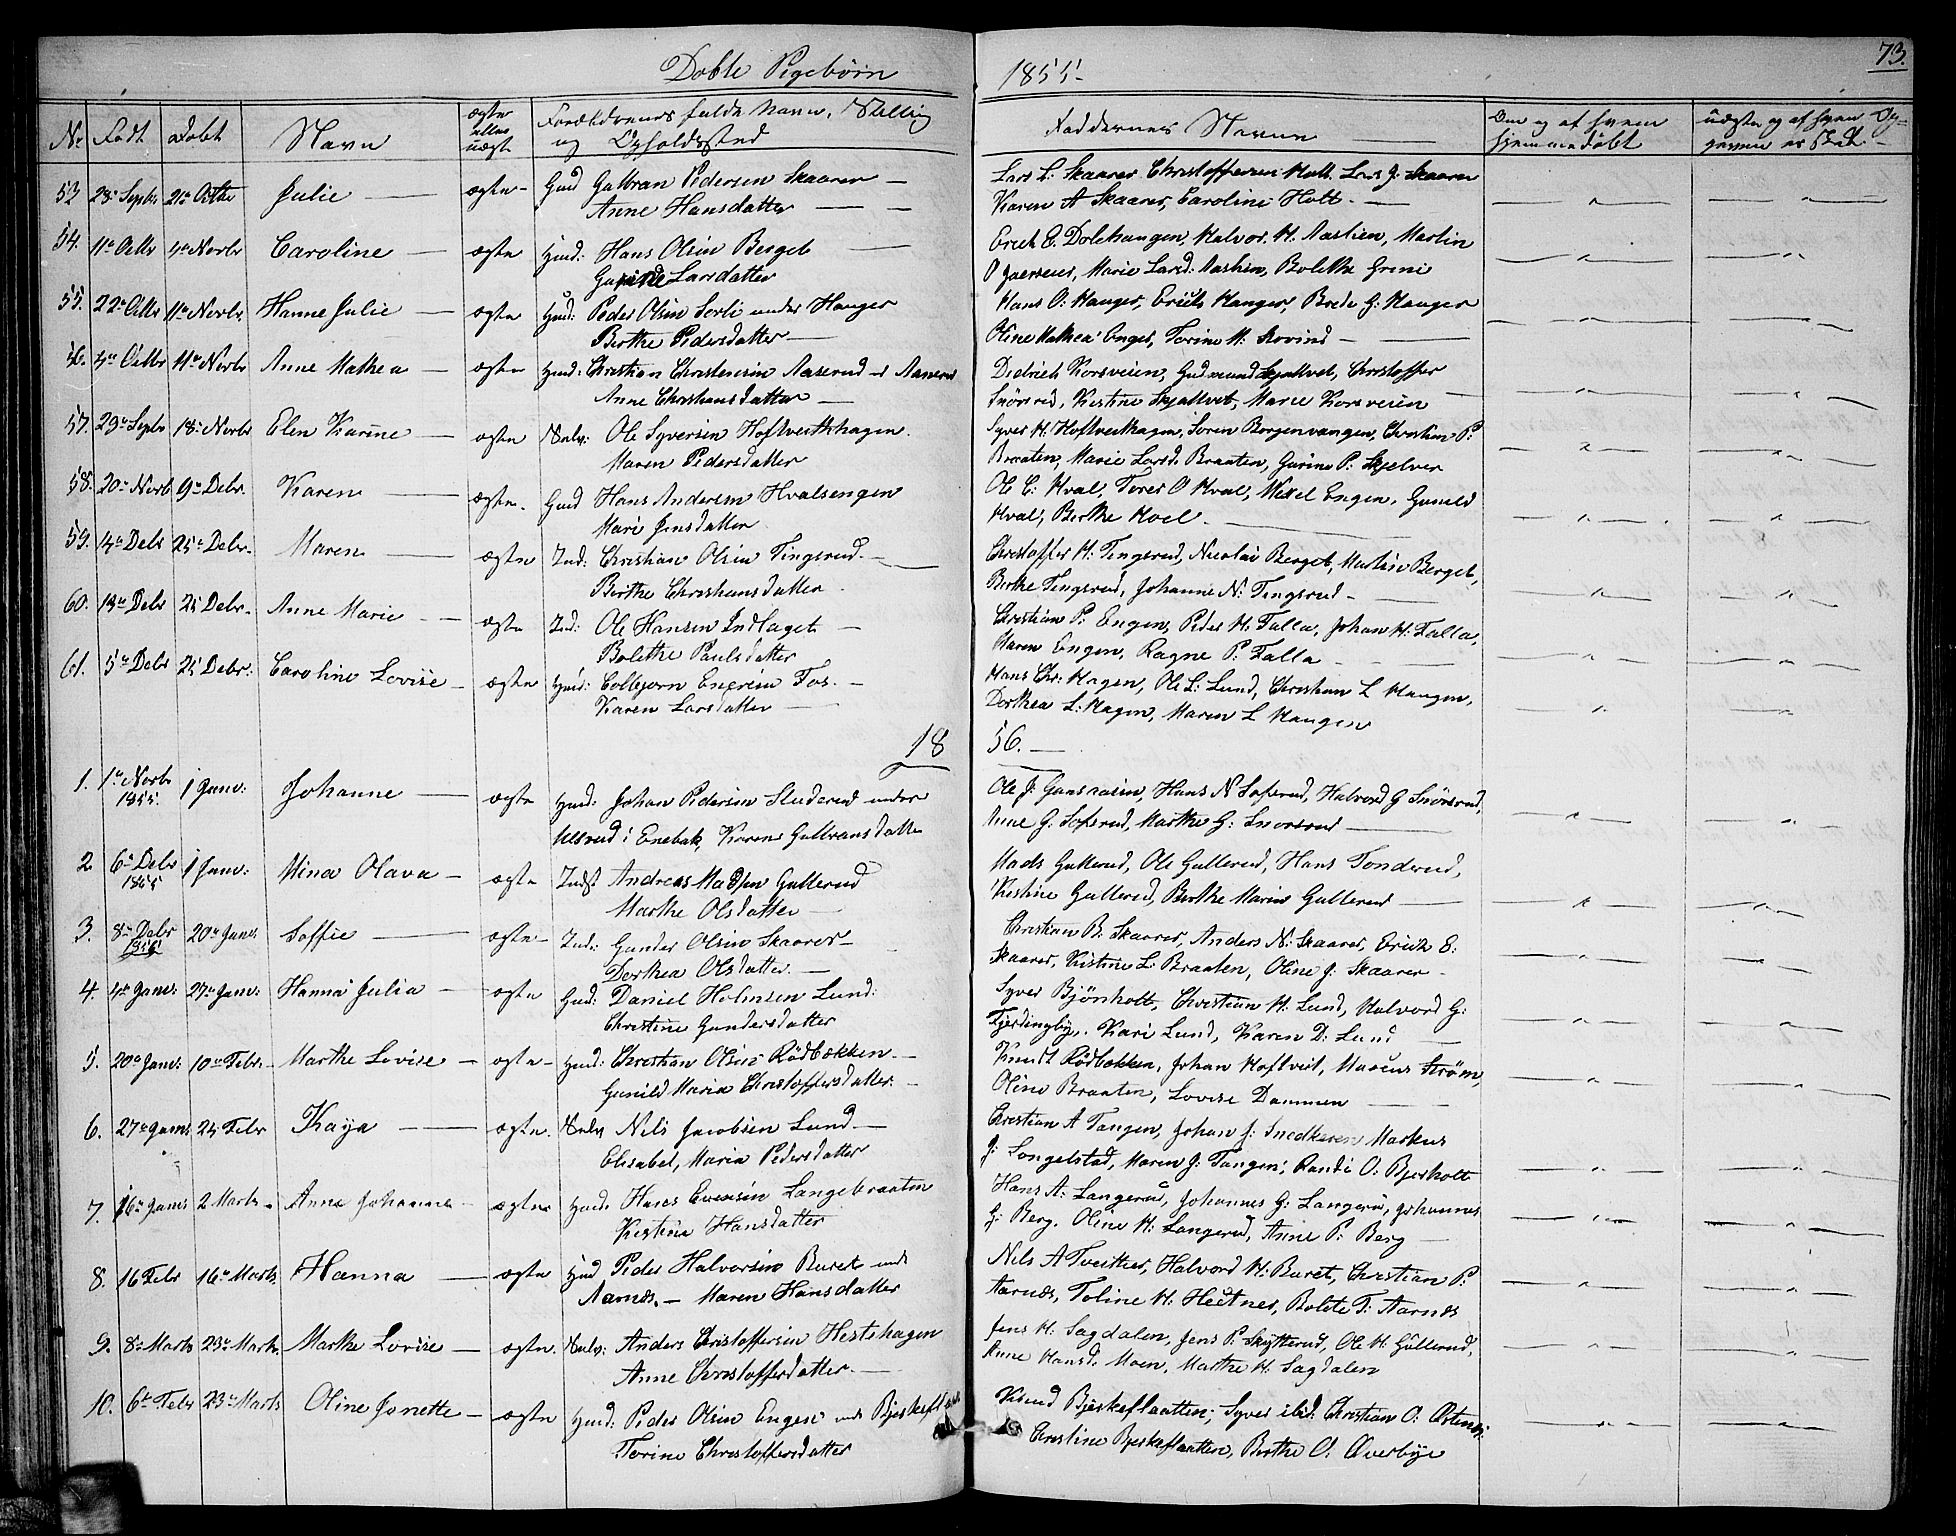 73.
Døbte Pigebørn 1855
No Født Døbt Navn ægte eller uægte Forældrenes fulde Navn, Stilling og Opholdssted Faddernes Navne Om og af hvem hjemmedøbt
53 28de Septbr 21de Octbr Julie — ægte Gmd Gulbran Pedersen Skaarer —
Anne Hansdatter — —
Lars L: Skaarer Christoffersen Holt. Lars J. Skaarer
Karen A Skaarer, Caroline Holt. —
54. 11te Octbr 4de Novbr Caroline — ægte Hmd: Hans Olsen Berget —
Larsdatter
Erich E. Dolehaugen, Halvor. H. Aastien, Martin
Marie Larsd: Aastien, Bolethe Greni
55. 22de Octbr 11te Novbr. Hanne Julie — ægte Hmd: Peder Olsen Sorli under Hauger
Berthe Pedersdatter —
Hans O: Hauger, Erich Hauger, Brede G: Hauger
Oline Mathea Enget, Torine M: Rovind —
56. 4de Octbr 11te Novbr Anne Mathea — ægte Hmd: Christian Christensen Aaserud
Anne Christiansdatter —
Didrich Korsveien, Gudmund Skjallvet, Christoffer
Snörsrud, Kistine Skjallvet, Marie Korsveien
57. 29de Septbr 18de Novbr Elen Karine — ægte Selv: Ole Syversen Hoftvethhagen.
Maren Pedersdatter
Syver H. Hoftvethagen, Soren Borgenvangen, Christian P:
Braaten, Marie Larsd. Braaten, Gurine P: Skjelver
58. 20de Novb 9de Debr. Karen — ægte. Hmd Hans Andersen Hvalsengen
Mari Jensdatter.
Ole C: Hval, Torer O Hval, Engen, Gunild
Hval, Berthe Hoel. —
59. 14de Debr 25de Debr. Maren — ægte Ind: Christian Olsen Tingsrud. —
Berthe Christiansdatter
Christoffer H: Tingsrud, Nicolai Berget, Mathise Berget,
Berthe Tingsrud, Johanne N: Tingsrud —
60. 13de Debr 25 Debr. Anne Marie — ægte Ind: Ole Hansen Indlaget —
Bolethe Paulsdatter
Christian P: Engen, Peder H. Falla, Johan H. Falla,
Maren Engen, Ragne P: Falla —
61. 5te Debr 25 Debr: Caroline Lovise — ægte Hmd: Colbjorn Enersen Fos. —
Karen Larsdatter —
Hans Chr: Hagen, Ole L: Lund, Christian L Haugen,
Dorthea L: Hagen, Maren L Haugen
1856. —
1. 1te Novb 1855. 1 Janv: Johanne — ægte Hmd: Johan Pedersen Sluderud under
Ulsrud i Enebak, Karen Gulbransdatter
Ole J: Gaasnasen, Hans N Soferud, Halvord G Snörsrud,
Anne G: Soferud, Marthe G: Snorsrud —
2. 6te Debr 1855 1 Janv: Mina Olava — ægte Indst Andreas Madsen Gullerud
Marthe Olsdatter —
Mads Gullerud, Ole Gullerud, Hans Tonderud,
Kestine Gullerud, Berthe Marie Gullerud —
3. 8de Debr 20de Janv: Soffie — ægte — Ind: Gunder Olsen Skaarer —
Dorthea Olsdatter. —
Christian B. Skaarer, Anders N: Skaarer, Erick E:
Skaarer, Kistine L: Braaten, Oline J: Skaarer —
4. 4de Janv: 27de Janv: Hanna Julia — ægte Gmd: Daniel Holmsen Lund:
Christine Gundersdatter
Syver Bjönholt, Christian H. Lund, Halvord G:
Fjerdingby. Kari Lund, Karen D: Lund —
5. 20de Janv: 10de Febr. Marthe Lovise — ægte — Hmd: Christian Olsen Rödbækken. —
Gunild Maria Christoffersdatter. —
Knudt Rödbekken, Johan Hoftvet, Marcus Ström,
Oline Braaten, Lovise Dammen —
6. 27de Janv 24 Febr Kaja — ægte. Selv Nils Jacobsen Lund. —
Elisabet, Maria Pedersdatter
Christian A Tangen, Johan J: Snedkeren Markus
J: Longelstad, Maren J: Tangen, Randi O: Bjerholt
7. 16de Janv 2 Marts. Anne Johanne — ægte Hmd. Hans Evensen Langebraaten
Kistine Hansdatter
Hans A: Langerud, Johannes G: Langerud, Johannes
G: Berg. Oline H: Langerud, Anne P: Berg —
8. 16 Febr 16de Marts Hanna — ægte Hmd Peder Halvorsen Buret und
Aarnæs. — Maren Hansdatter
Nils A Tveitter, Halvord H: Buret, Christian P:
Aarnæs, Toline H: Hectner, Bolete T: Aarnæs
9. 8de Marts 23de Marts. Marthe Lovise — ægte. Selv: Anders Christoffersen Hestehagen
Anne Christoffersdatter. —
Jens H. Sagdalen, Jens P: Skytterud, Ole H Gullerud,
Anne Hansd. Moen, Marthe H. Sagdalen
10. 6te Febr 23de Marts Oline Jonette — ægte Hmd: Peder Olsen Engen
Torine Christoffersdatter
Knud Bjerkeflaatten, Syver ibid: Christian O:
Christine Bjerkeflaatten, Berthe O: Øverbye